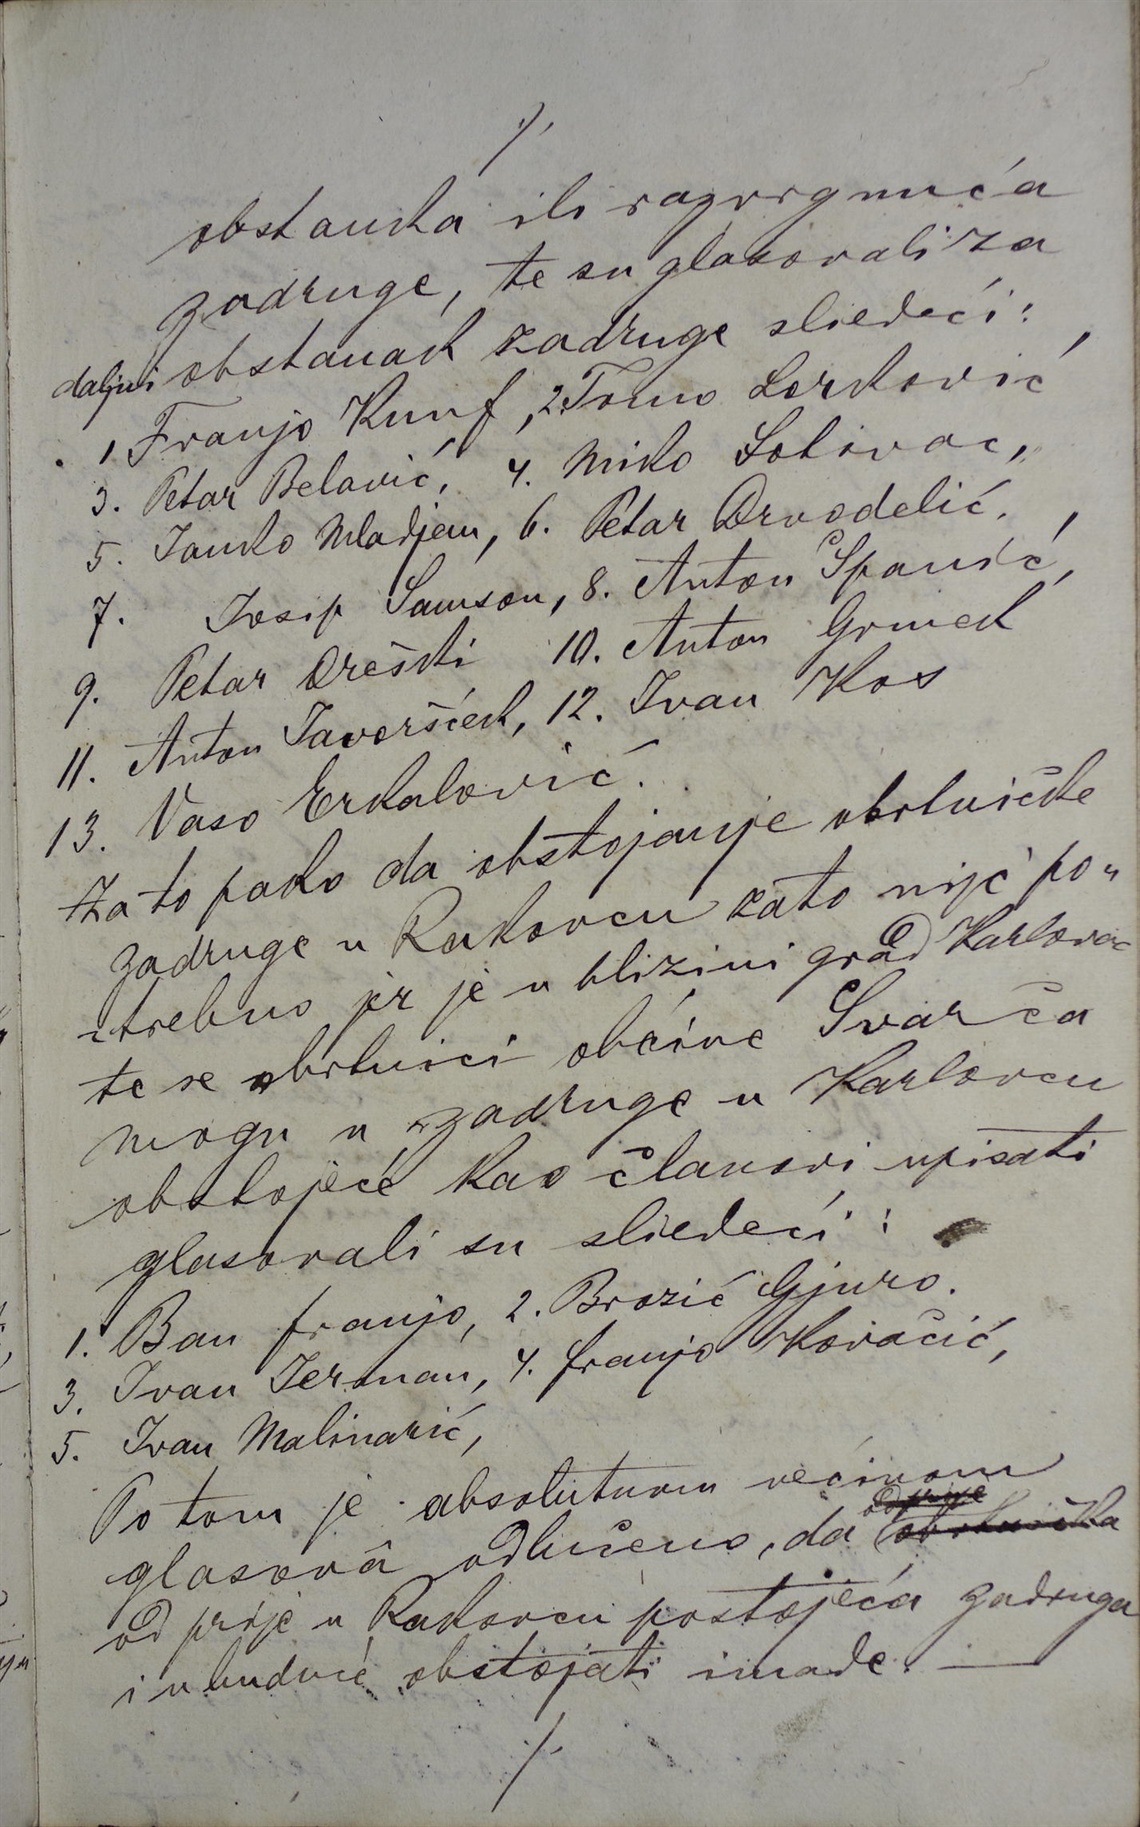 ./.
obstanka ili razvrgnuća
zadruge, te su glasovali za
daljni obstanak zadruge sliedeći:
1 Franjo Kunf, 2. Tomo Lorković,
3. Petar Belavić, 4. Miko Sotivac,
5. Janko Mladjan, 6. Petar Drvodelić,
7. Josip Samson, 8. Anton Španić,
9. Petar Dreški 10. Anton Grmek
11. Anton Javoršćek, 12. Ivan Kos
13. Vaso Erkalović.
Za to pako da obstojanje obrtničke
zadruge u Rakovcu zato nije po„
trebno jer je u blizini grad Karlovac
te se obrtnici občine Švarča
mogu u zadruge u Karlovcu
obstojeće kao članovi upisati
glasovali su sliedeći:
1. Ban Franjo, 2. Brozić Gjuro.
3. Ivan Jerman, 4. Franjo Kovačić,
5. Ivan Malinarić,
Po tom je absolutnom većinom
glasovâ odlučeno, da od prije obrtnička
od prije u Rakovcu postojeća zadruga
i u buduće obstojati imade. —
./.